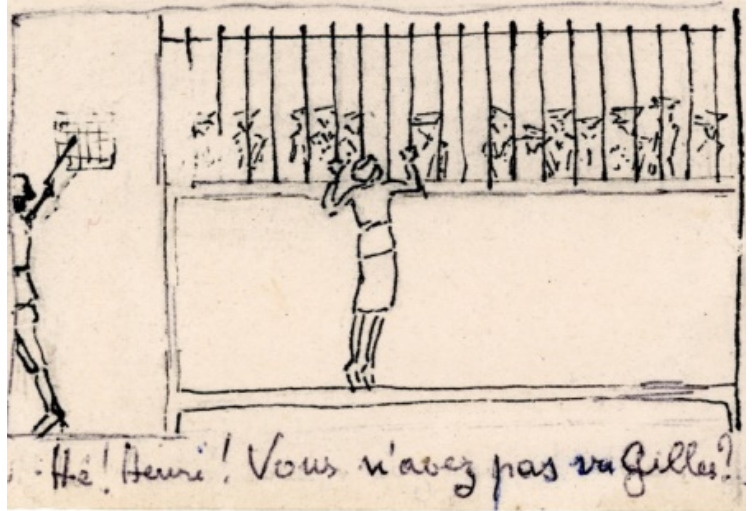 Hé! Henri! Vous n'avez pas vu Gilles?